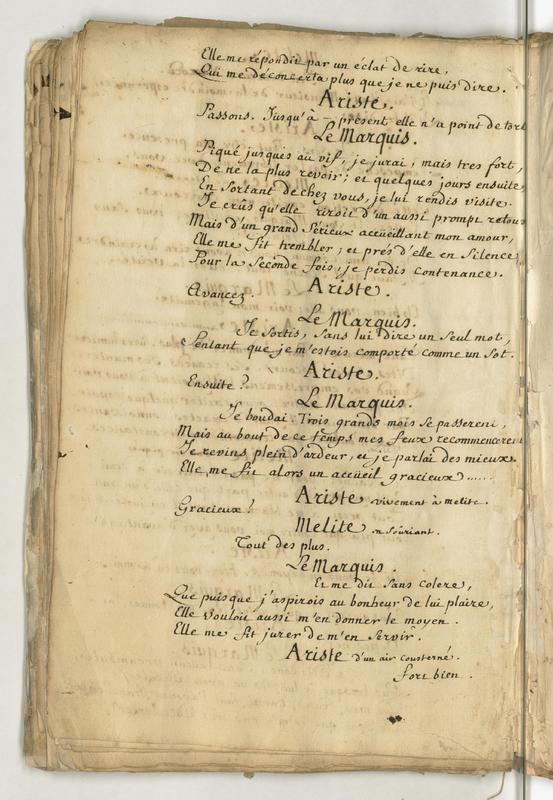 Elle me répondit par un éclat de rire,
Qui me déconcerta plus que je ne puis dire.
Ariste.
Passons. Jusqu'a present elle n'a point de tort
Le Marquis.
Piqué jusques au vif, je jurai, mais tres fort,
De ne la plus revoir; et quelques jours ensuite
En sortant de chez vous, je lui rendis visite.
Je crûs qu'elle riroit d'un aussi prompt retour
Mais d'un grand sérieux accüeillant mon amour,
Elle me fit trembler; et prés d'elle en silence
Pour la seconde fois, je perdis contenance.
Ariste.
Avancez.
Le Marquis.
Je sortis, sans lui dire un seul mot,
Sentant que je m'estois comporté comme un sot.
Ariste.
Ensuite?
Le Marquis.
Je boudai. Trois grands mois se passerent,
Mais au bout de ce temps mes feux recommencerent
Je revins plein d'ardeur, et je parlai des mieux.
Elle me fit alors un accüeil gracieux......
Ariste vivement à melite.
Gracieux?
Melite en soûriant.
Tout des plus.
Le Marquis.
Et me dit sans colere,
Que puisque j'aspirois au bonheur de lui plaire,
Elle vouloit aussi m'en donner le moyen.
Elle me fit jurer de m'en servir.
Ariste d'un air consterné.
fort bien.